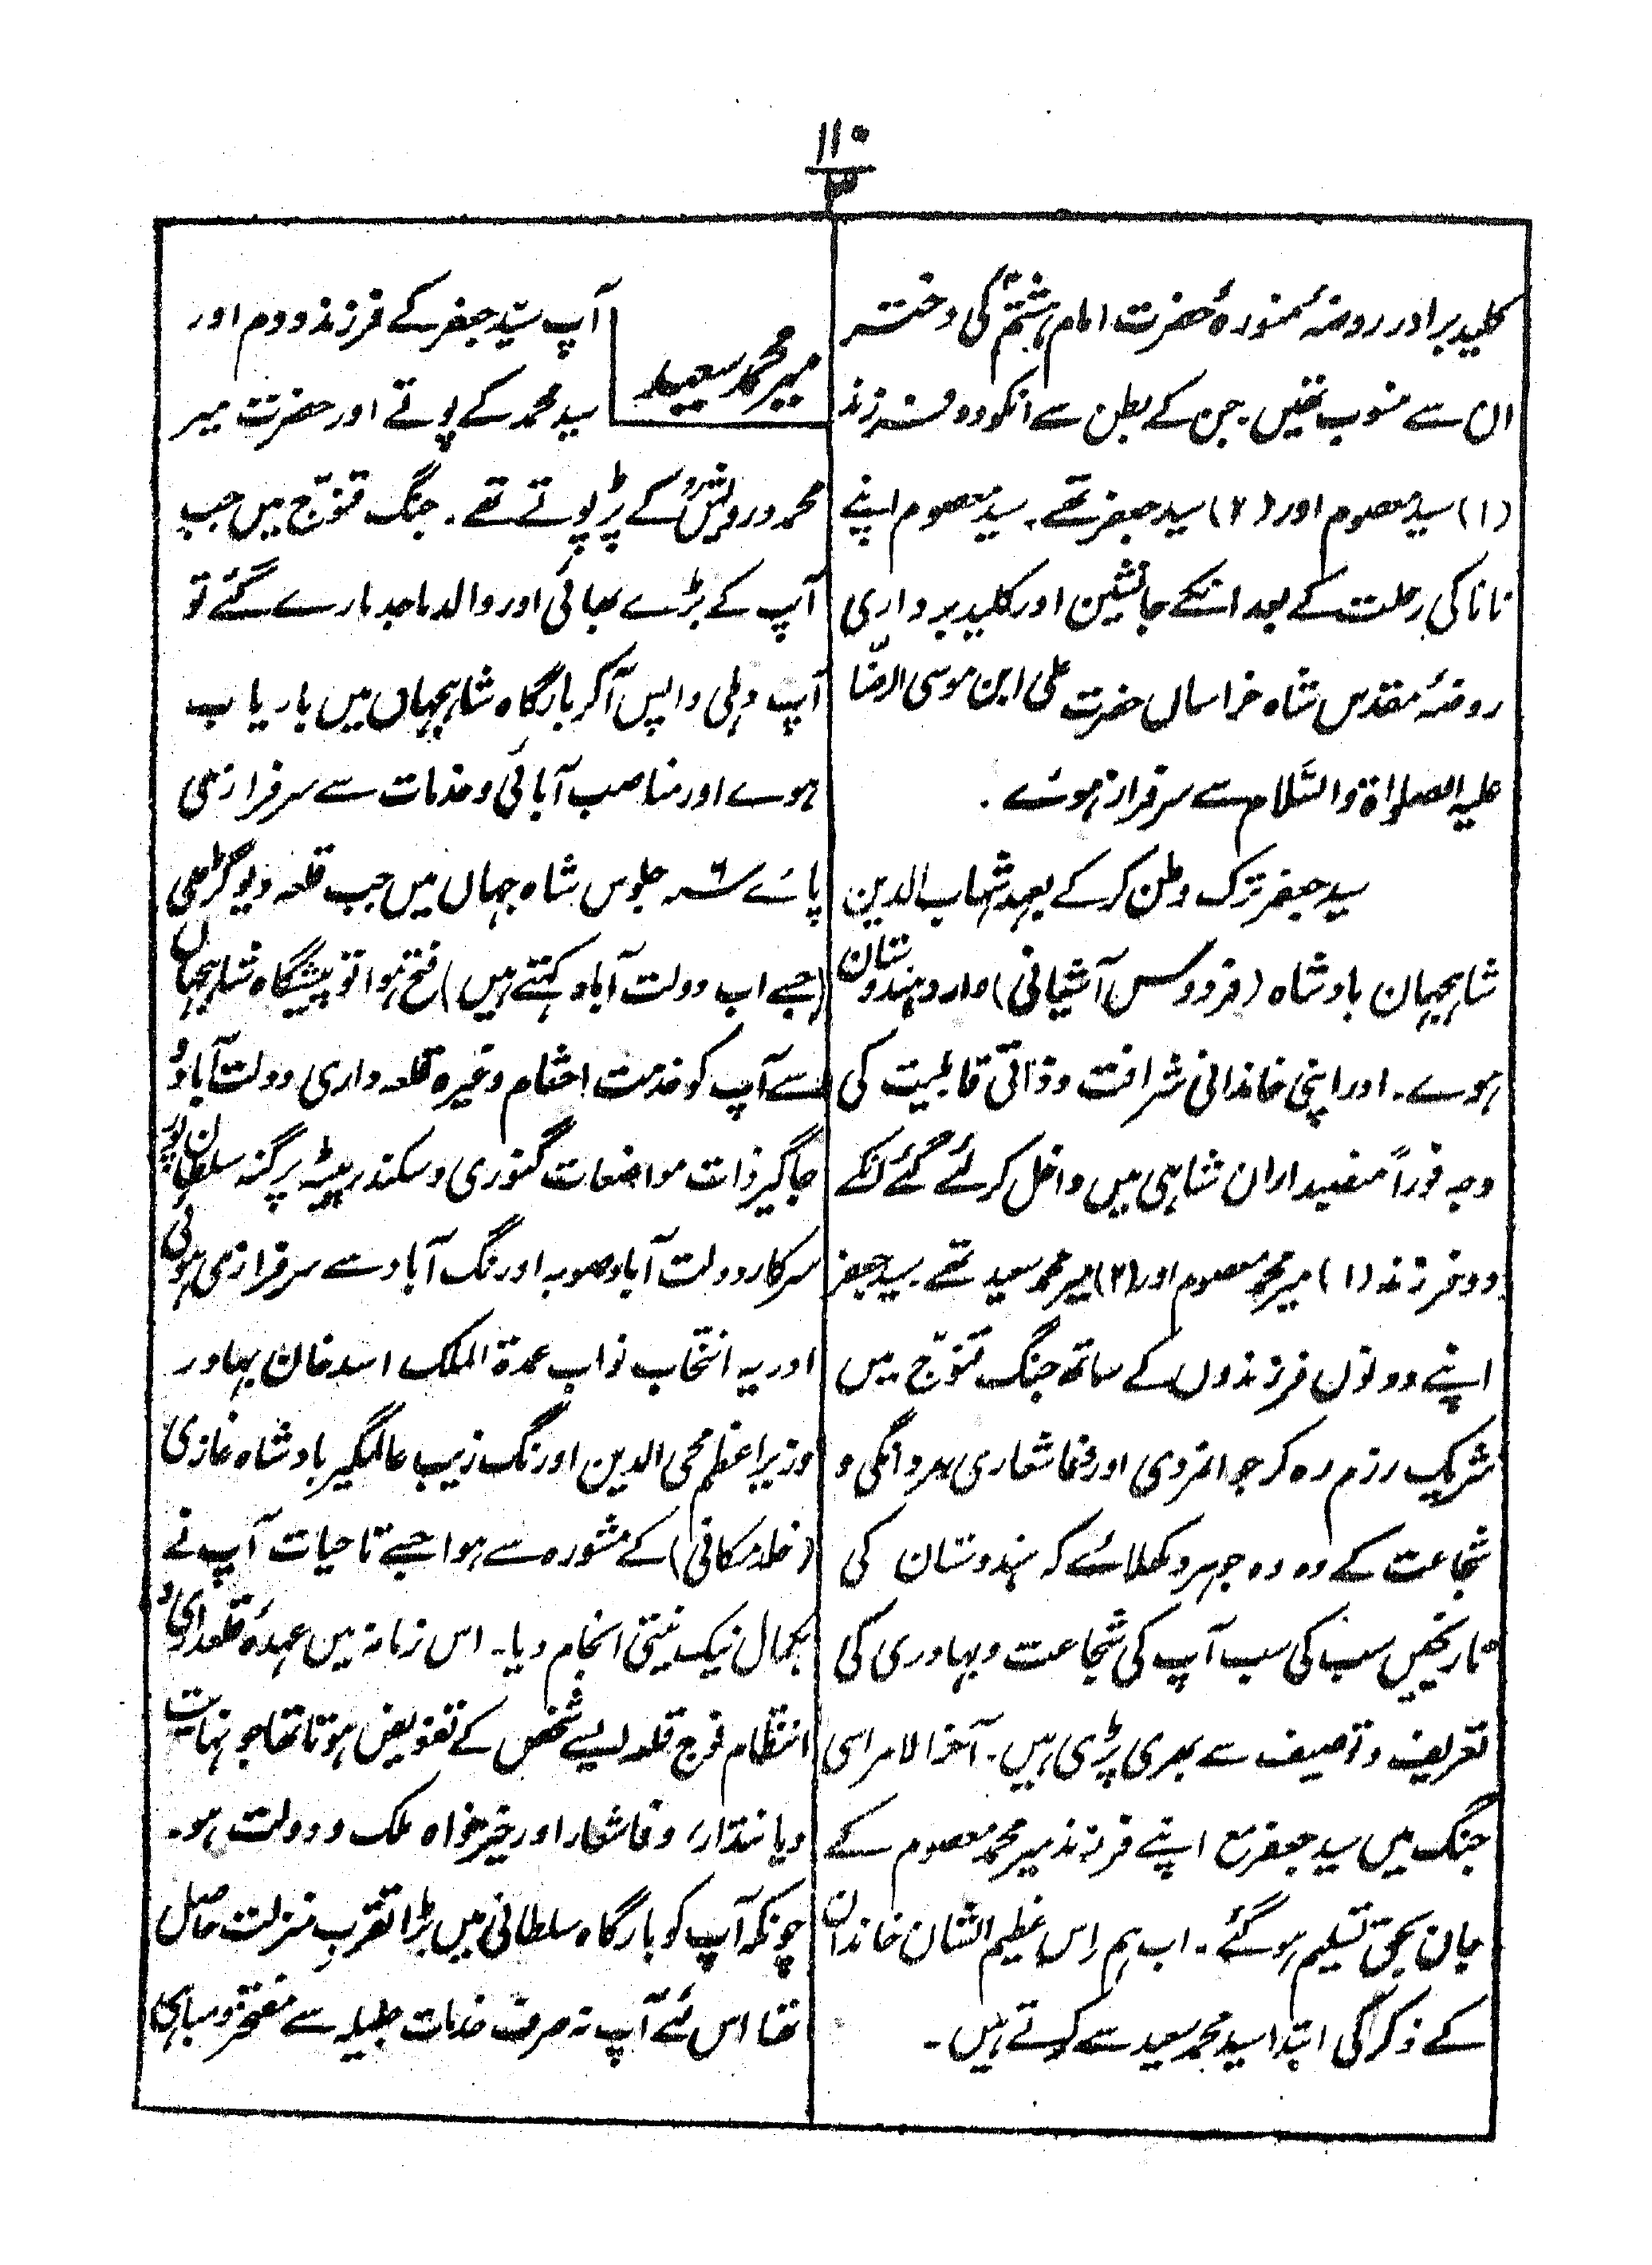 ۱۱۰
۳
کلید بردار روضۂ منورۂ حضرت امام ہشتمؑ کی دختر
ان سے منسوب تھیں۔ جن کے بطن سے انکو دو فرزند
(۱) سید معصوم اور (۲) سید جعفر تھے۔ سید معصوم اپنے
نانا کی رحلت کے بعد انکے جانشین اور کلید برداری
روضۂ مقدس شاہ خراسان حضرت علی ابن موسی الرضا
علیہ الصلواۃ والسَّلام سے سرفراز ہوئے۔
سید جعفر ترک وطن کرکے بعہد شہاب الدین
شاہجہان بادشاہ (فردوس آشیانی) وارد ہندوستان
ہوے۔ اور اپنی خاندانی شرافت و ذاتی قابلیت کی
وجہ فوراً منصبداران شاہی میں داخل کرلئے گئے انکے
دو فرزند (۱) میر محمد معصوم اور (۲) میر محمد سعید تھے۔ سید جعفر
اپنے دونوں فرزندوں کے ساتھ جنگ قنوّج میں
شریک رزم رہ کر جوانمردی اور وفا شعاری مردانگی و
شجاعت کے وہ وہ جوہر دکھلائے کہ ہندوستان کی
تاریخیں سب کی سب آپ کی شجاعت و بہادری کی
تعریف و توصیف سے بھری پڑی ہیں۔ آخر الامر اسی
جنگ میں سید جعفر مع اپنے فرزند میر محمد معصوم کے
جان بحق تسلیم ہوگئے۔ اب ہم اس عظیم الشان خاندان
کے ذکر کی ابتدا سید محمد سعید سے کرتے ہیں۔
میر محمد سعید
آپ سیّد جعفر کے فرزند دوم اور
سید محمد کے پوتے اور حضرت میر
محمد درویشؒ کے پڑپوتے تھے۔ جنگ قنوّج میں جب
آپ کے بڑے بھائی اور والد ماجد مارے گئے تو
آپ دہلی واپس آکر بارگاہ شاہجہاں میں باریاب
ہوے اور مناصب آبائی و خدمات سے سرفرازی
پائے ۶ جلوس شاہ جہاں میں جب قلعہ دیوگڑھی
(جسے اب دولت آباد کہتے ہیں) فتح ہوا تو پیشگاہ شاہجہاں
سے آپ کو خدمت احشام وغیرہ قلعہ داری دولت آباد و
جاگیر ذات مواضعات گنوری و سکندر پیٹہ پرگنہ سلطان پور
سرکار دولت آباد صوبہ اورنگ آباد سے سرفرازی ہوئی
اور یہ انتخاب نواب عمدۃ الملک اسد خان بہادر
وزیر اعظم محی الدین اورنگ زیب عالمگیر بادشاہ غازی
(خلد مکانی) کے مشورہ سے ہوا جسے تا حیات آپ نے
بکمال نیک نیتی انجام دیا۔ اس زمانہ میں عہدۂ قلعداری و
انتظام فوج قلعہ ایسے شخص کے تفویض ہوتا تھا جو نہایت
دیانتدار، وفا شعار اور خیر خواہ ملک و دولت ہو۔
چونکہ آپ کو بارگاہ سلطانی میں بڑا تقرب منزلت حاصل
تھا اس لئے آپ نہ صرف خدمات جلیلہ سے مفتخر و مباہی